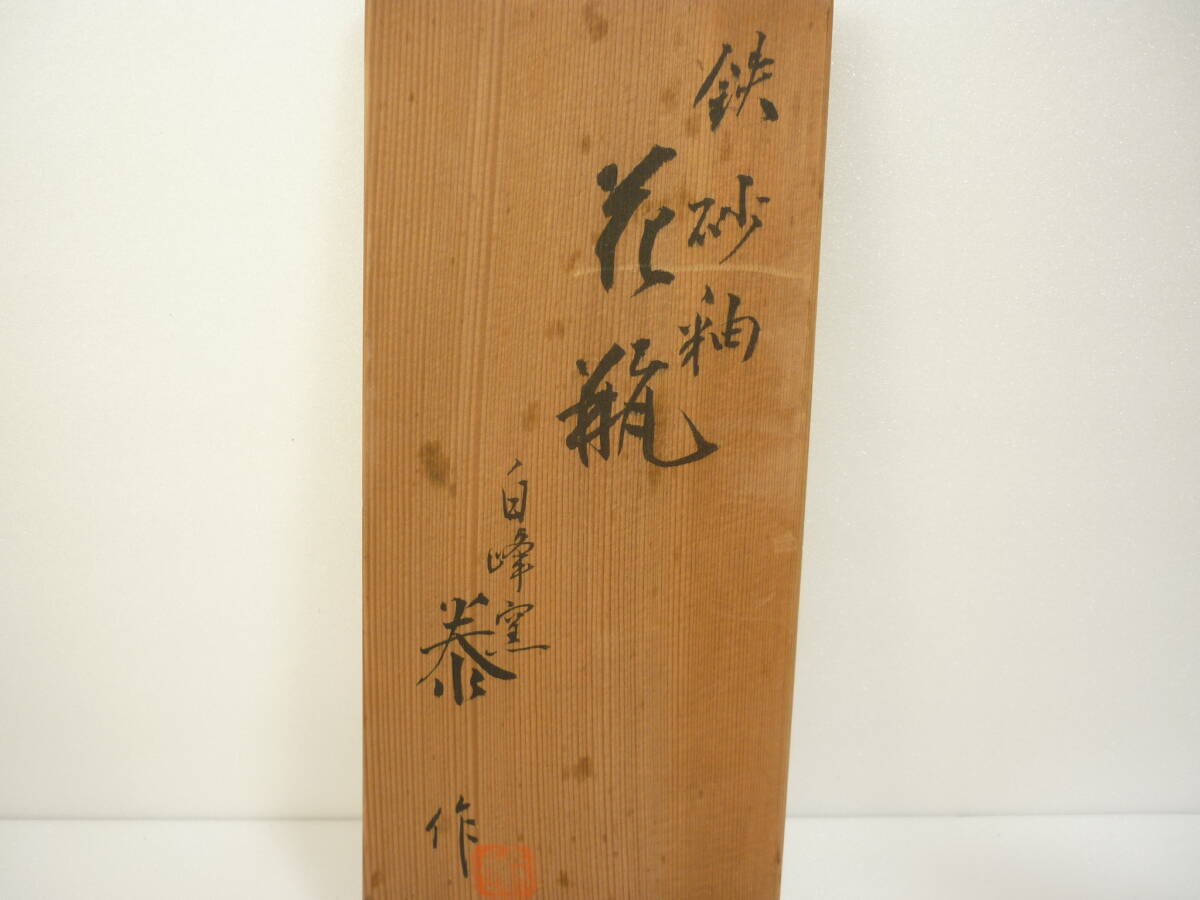 鉄砂釉
花瓶
白峰窯
泰作